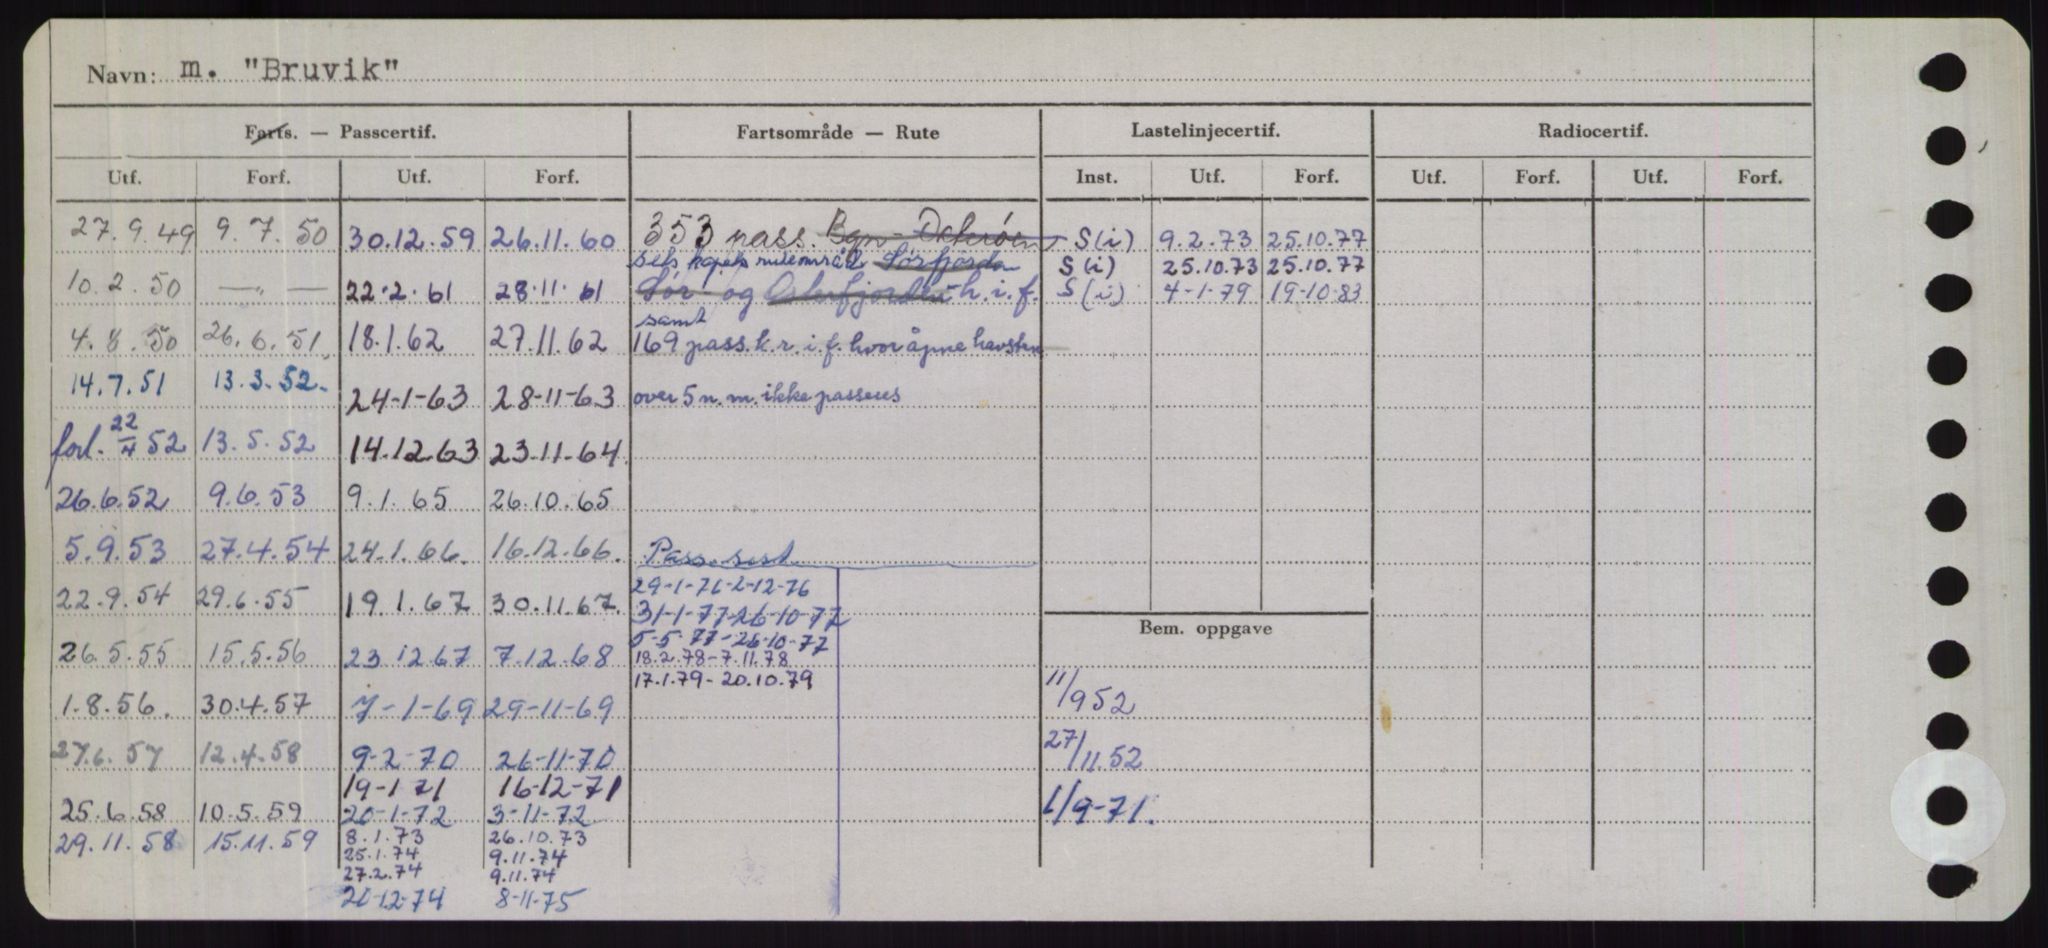 Navn: m. "Bruvik"
Farts. — Passcertif. Fartsområde — Rute Lastelinjecertif. Radiocertif.
Utf. Forf. Utf. Forf. Inst. Utf. Forf. Utf. Forf. Utf. Forf.
27.9.49 9.7.50 30.12.59 26.11.60 353 pass. Bgn- S(i) 9.2.73 25.10.77
Sørfjorden S(i) 25.10.73 25.10.77
10.2.50 — „ — 22.2.61 28.11.61 Sør- og Osterfjorden h.i.f. S(i) 4-1-79 19-10-83
samt
4.8.50 26.6.51. 18.1.62 27.11.62 169 pass. k.r.i.f. hvor åpne havstrn
14.7.51 13.3.52. 24-1-63 28-11-63 over 5 n.m. ikke passeres
forl. 22/4 52 13.5.52 14.12.63 23.11-64.
26.6.52 9.6.53 9.1.65 26.10.65
5.9.53 27.4.54 24.1.66. 16.12.66. Pass.sert
22.9.54 29.6.55 19.1.67 30.11.67. 29-1-76-2-12-76
31-1-77-26-10-77
Bem. oppgave
5-5-77-26-10-77
26.5.55 15.5.56 23.12.67 7.12.68 18.2.78-7.11.78
17.1.79-20.10.79
1.8.56. 30.4.57 7-1-69 29-11-69 11/9 52
27.6.57 12.4.58 9-2-70 26-11-70 27/11 52
19-1-71 16-12-71
25.6.58 10.5.59 20-1-72 3-11-72 1/9-71.
29.11.58 15.11.59 8.1.73 26.10.73
25.1.74 9.11.74
27.2.74 9.11.74
20-12-74 8-11-75